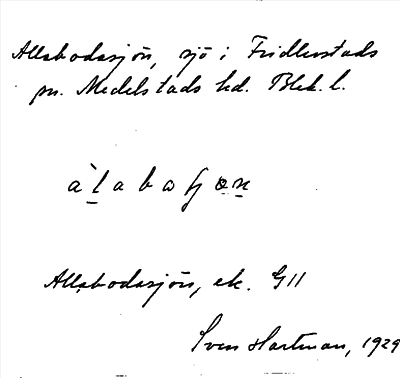 Allabodasjön, sjö i Fridlevstads
sn. Medelstads hd. Blek. l.
àḷaboɧøṇ
Allabodasjön, ek. G11
Sven Hartman, 1929